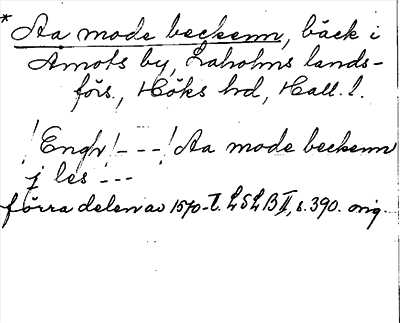 *Aa mode beckenn, bäck i
Åmots by, Laholms lands-
förs., Höks hd, Hall. l.
! Engh ! - - - ! Aa mode beckenn
j les - - -
förra delen av 1570-t. LSLB II, s. 390. orig.